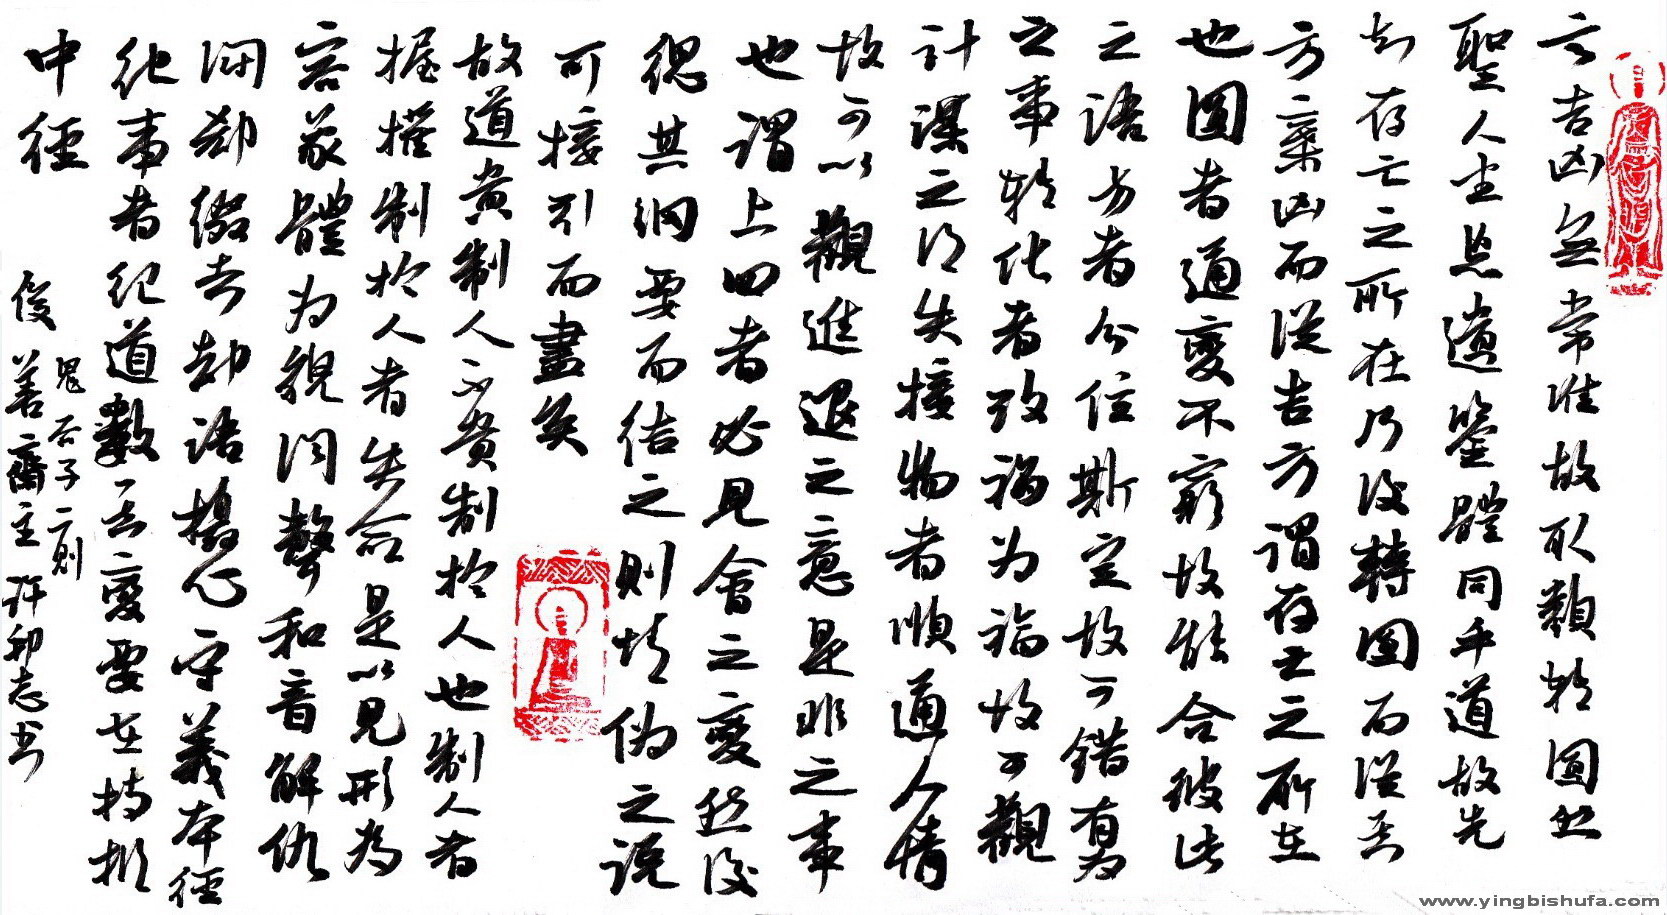 言吉凶無常準故取類轉圓然
聖人坐忘遺鑒體同乎道故先
知存亡之所在乃後轉圓而從其
方棄凶而從吉方謂存亡之所在
也圓者通變不窮故能合彼此
之語方者分位斯定故可錯有為
之事轉化者改禍為福故可觀
計謀之得失接物者順通人情
故可以觀進退之意是非之事
也謂上四者必見會之變然後
總其綱要而結之則情偽之說
可接引而盡矣
故道貴制人不貴制於人也制人者
握權制於人者失命是以見形為
容象體為貌聞聲和音解仇
鬥郄綴去却語攝心守義本經
紀事者紀道數其變要在持樞
中經
鬼谷子二則
俊善齋主 許卯志书
www.yingbishufa.com